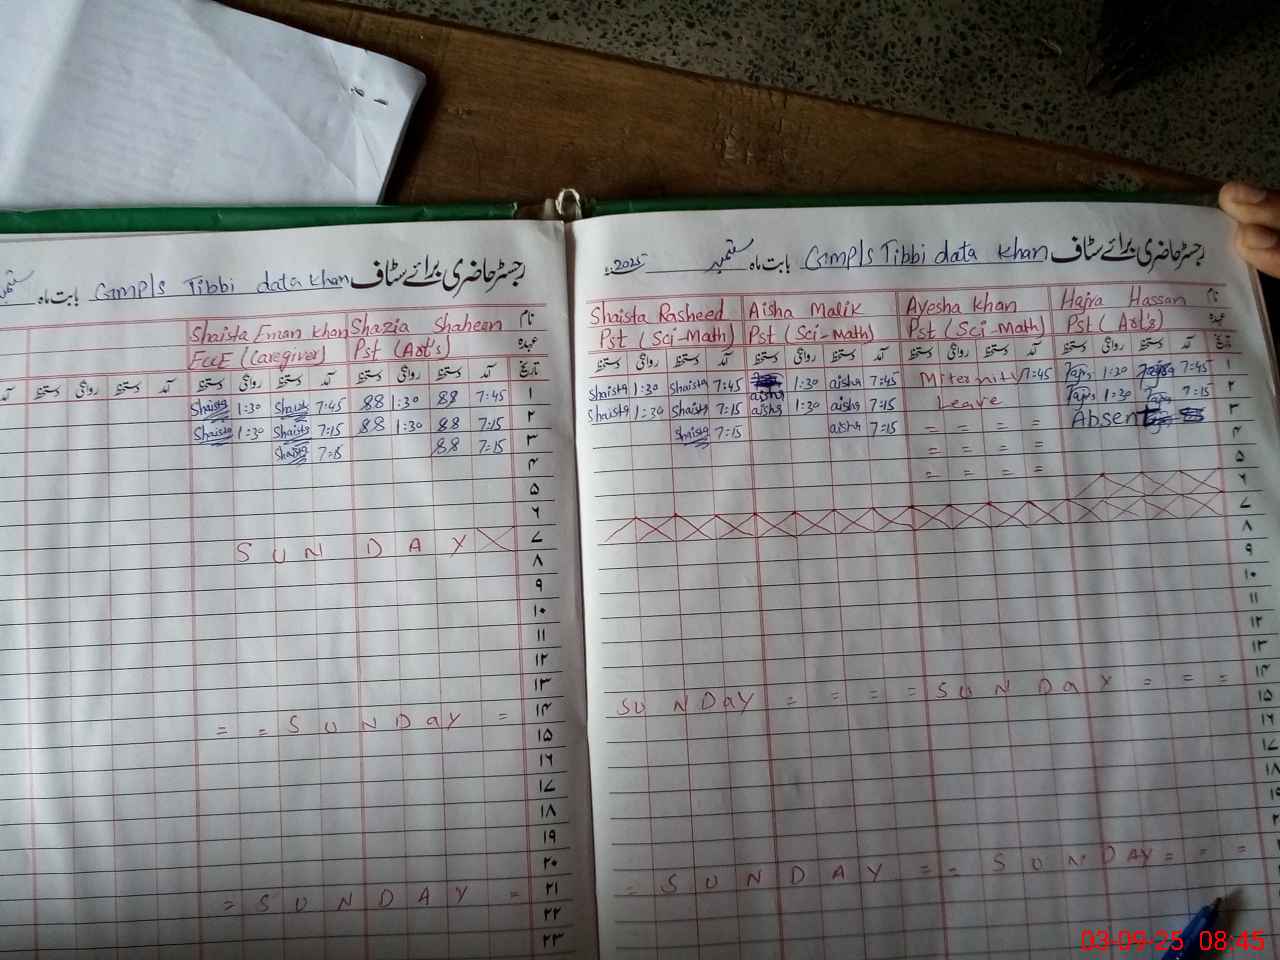 رجسٹر حاضری برائے سٹاف GMPLS Tibbi data khan بابت ماہ ستمبر
Shaista Eman khan Shazia Shaheen نام
ECCE (Caregiver) Pst (Art's) عہدہ
آمد دستخط روانگی دستخط آمد دستخط روانگی دستخط آمد تاریخ
Shaista 1:30 Shaista 7:45 88 1:30 88 7:45 ۱
Shaista 1:30 Shaista 7:15 88 1:30 88 7:15 ۲
Shaista 7:15 88 7:15 ۳
۴
۵
۶
S U N D A Y ۷
۸
۹
۱۰
۱۱
۱۲
۱۳
= = S U N D a Y = ۱۴
۱۵
۱۶
۱۷
۱۸
۱۹
۲۰
= S U N D A Y = ۲۱
۲۲
۲۳
رجسٹر حاضری برائے سٹاف GMPLS Tibbi data khan بابت ماہ ستمبر 2025ء
Shaista Rasheed Aisha Malik Ayesha Khan Hajra Hassan نام
Pst (Sci-Math) Pst (Sci-Math) Pst (Sci-Math) Pst (Art's) عہدہ
دستخط روانگی دستخط آمد دستخط روانگی دستخط آمد دستخط روانگی دستخط آمد دستخط روانگی دستخط آمد تاریخ
Shaista 1:30 Shaista 7:45 aisha 1:30 aisha 7:45 Miternity 7:45 1:30 7:45 ۱
Shaista 1:30 Shaista 7:15 aisha 1:30 aisha 7:15 Leave 1:30 7:15 ۲
Shaista 7:15 aisha 7:15 = = = = Absent ۳
= = = = ۴
= = = = ۵
۶
۷
۸
۹
۱۰
۱۱
۱۲
۱۳
SU N D a Y = = = = S U N D a Y = = = ۱۴
۱۵
۱۶
۱۷
۱۸
= S U N D A Y = = S U N D A Y = = =
03-09-25 08:45